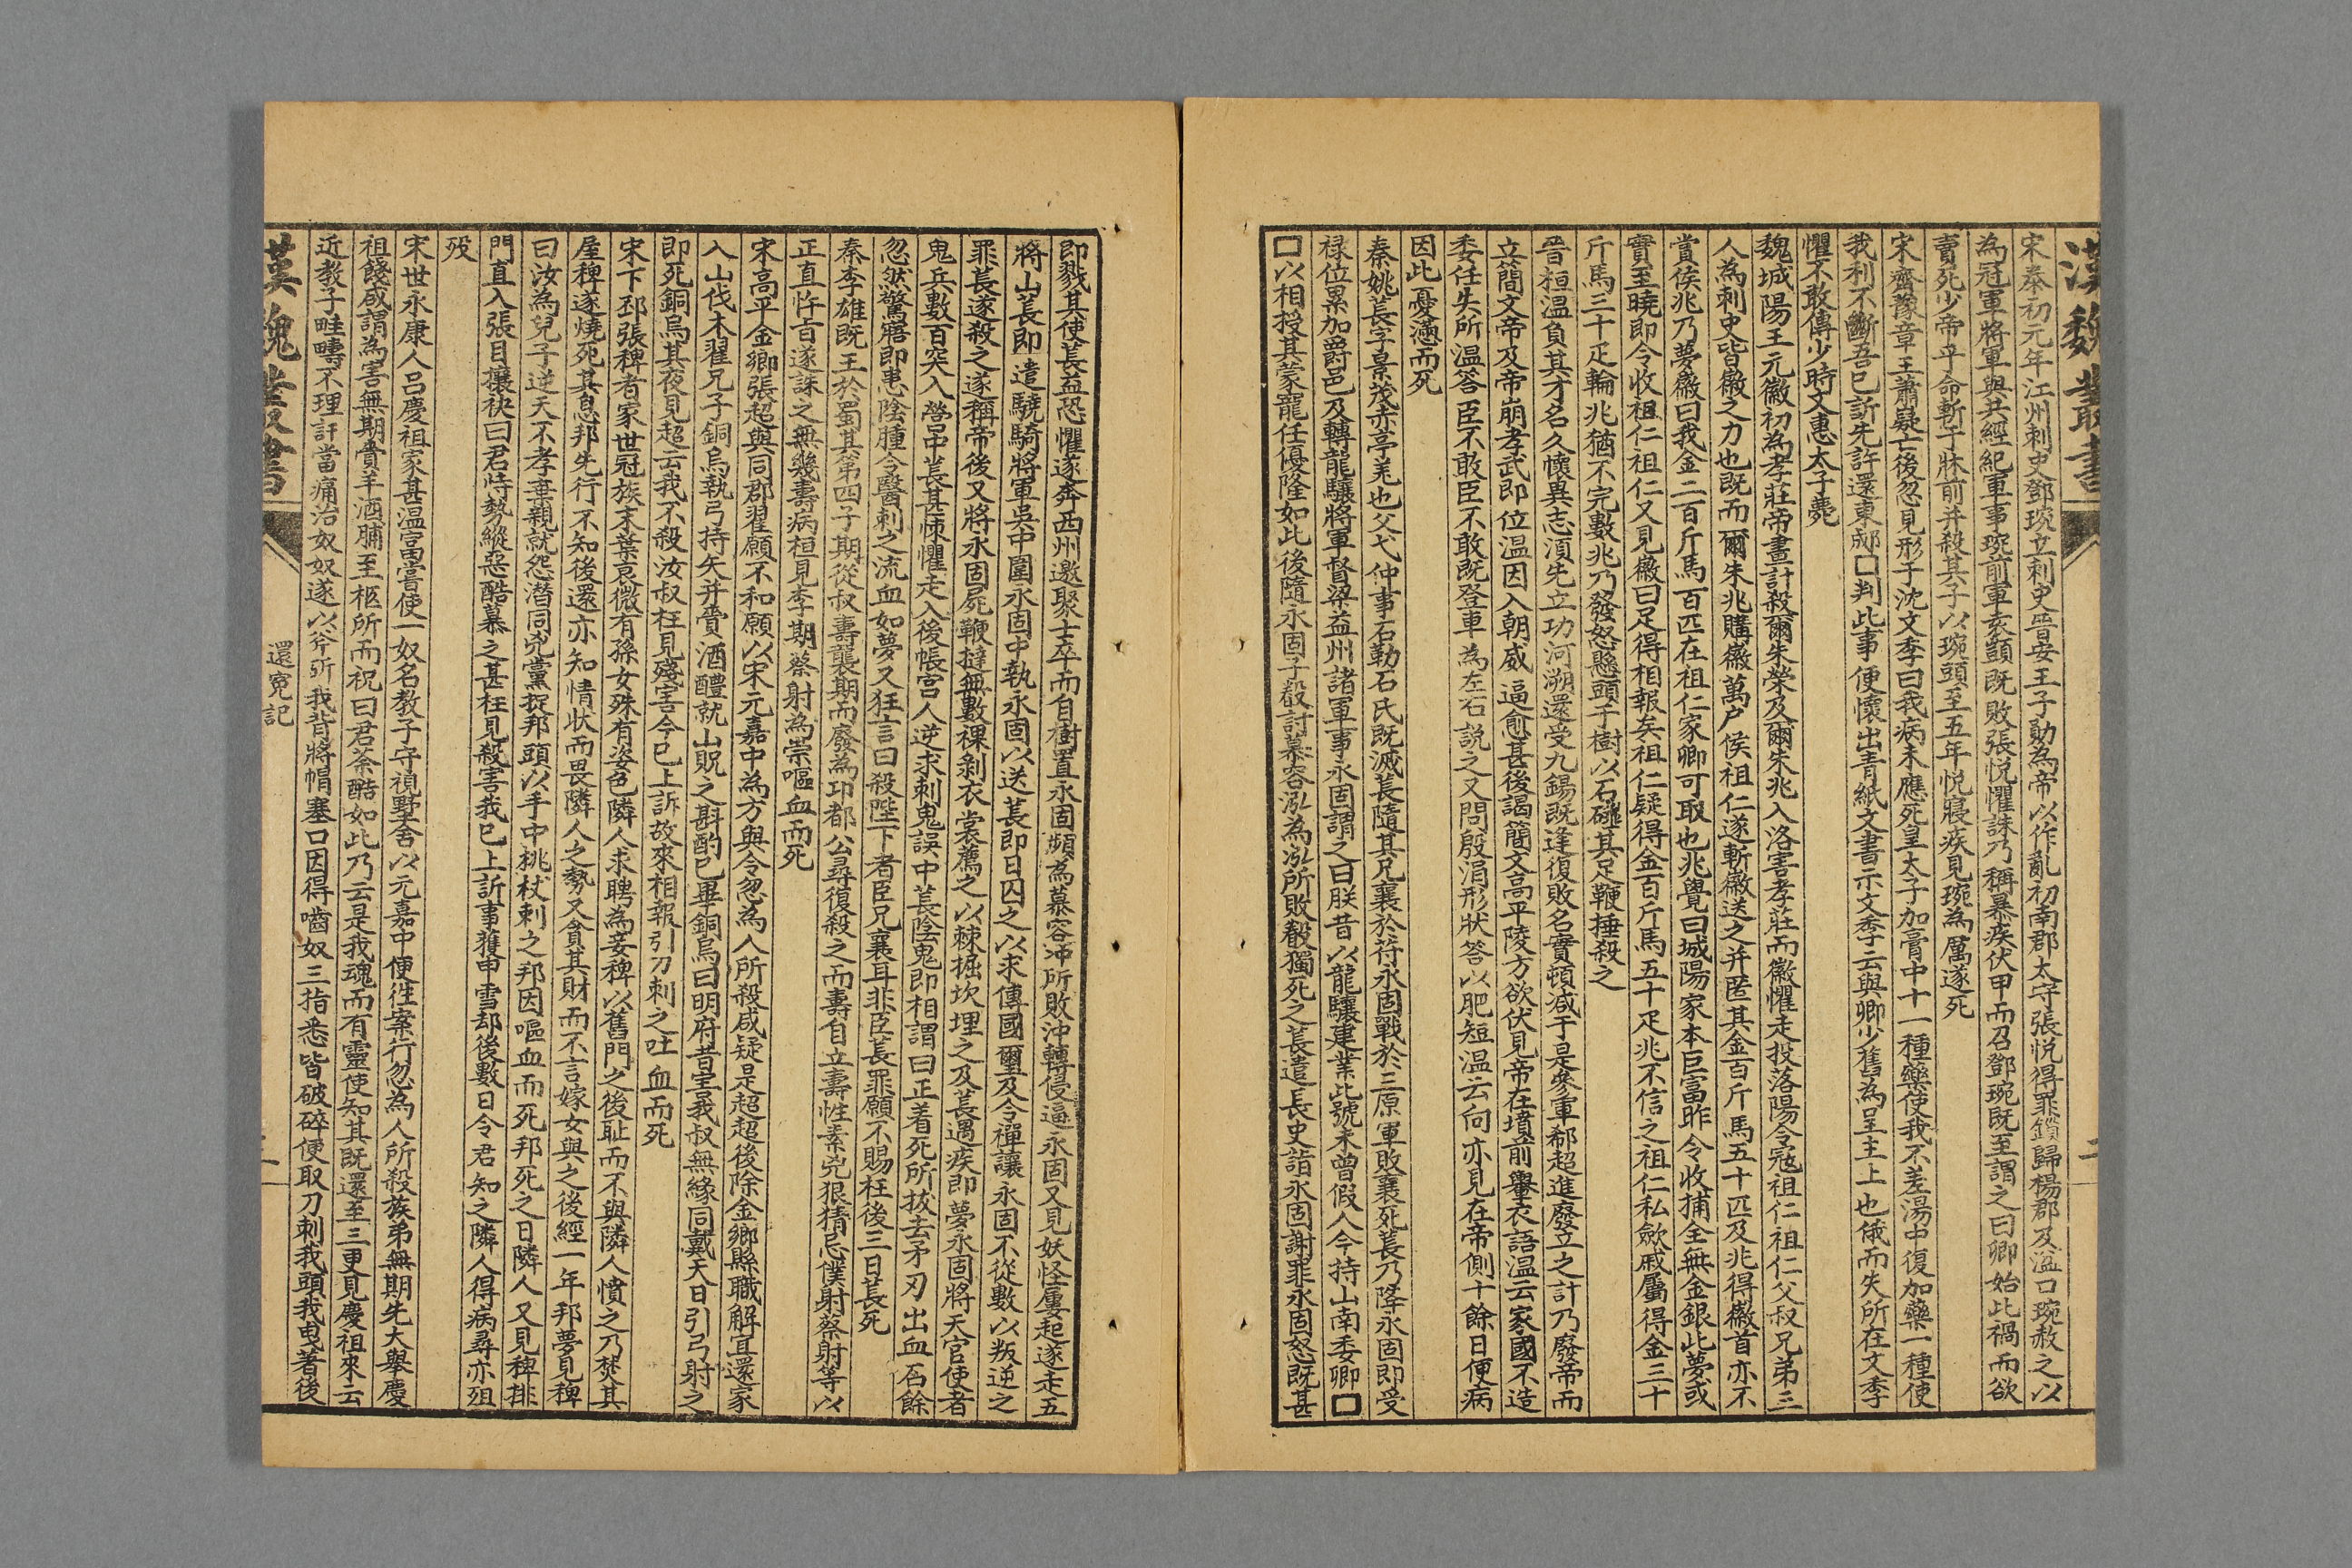 漢魏叢書
二
宋泰初元年江州刺史鄧琬立刺史晉安王子勛為帝以作亂初南郡太守張悅得罪鎖歸楊郡及湓口琬赦之以
為冠軍將軍與共經紀軍事琬前軍袁顗既敗張悅懼誅乃稱暴疾伏甲而召鄧琬既至謂之曰卿始此禍而欲
賣死少帝乎命斬于牀前并殺其子以琬頭至五年悅寢疾見琬為厲遂死
宋齊豫章王蕭嶷亡後忽見形于沈文季曰我病未應死皇太子加膏中十一種藥使我不差湯中復加藥一種使
我利不斷吾已訢先許還東邸□判此事便懷出青紙文書示文季云與卿少舊為呈主上也俄而失所在文季
懼不敢傳少時文惠太子薨
魏城陽王元徽初為孝莊帝畫計殺爾朱榮及爾朱兆入洛害孝莊而徽懼走投落陽令冦祖仁祖仁父叔兄弟三
人為刺史皆徽之力也既而爾朱兆購徽萬户侯祖仁遂斬徽送之并匿其金百斤馬五十匹及兆得徽首亦不
賞侯兆乃夢徽曰我金二百斤馬百匹在祖仁家卿可取也兆覺曰城陽家本巨富昨令收捕全無金銀此夢或
實至曉即今收祖仁祖仁又見徽曰足得相報矣祖仁疑得金百斤馬五十疋兆不信之祖仁私歛戚屬得金三十
斤馬三十疋輪兆猶不完數兆乃發怒懸頭于樹以石硾其足鞭捶殺之
晉桓溫負其才名久懷異志湏先立功河溯還受九錫既逢復敗名實頓減于是參軍郗超進廢立之計乃廢帝而
立簡文帝及帝崩孝武即位溫因入朝威逼愈甚後謁簡文高平陵方欲伏見帝在墳前舉衣語溫云家國不造
委任失所溫答臣不敢臣不敢既登車為左右説之又問殷涓形狀答以肥短溫云向亦見在帝側十餘日便病
因此憂懣而死
秦姚萇字景茂赤亭羌也父弋仲事石勒石氏既滅萇隨其兄襄於苻永固戰於三原軍敗襄死萇乃降永固即受
禄位累加爵邑及轉龍驤將軍督梁益州諸軍事永固謂之曰朕昔以龍驤建業此號未曾假人今持山南委卿□
□以相授其蒙寵任優隆如此後隨永固子叡討慕容泓為泓所敗叡獨死之萇遣長史詣永固謝罪永固怒既甚
即戮其使萇益恐懼遂奔西州邀聚士卒而自樹置永固頻為慕容冲所敗沖轉侵逼永固又見妖怪屢起遂走五
將山萇即遣驍騎將軍吳中圍永固中執永固以送萇即日囚之以求傳國璽及令禪讓永固不從數以叛逆之
罪萇遂殺之遂稱帝後又將永固屍鞭撻無數裸剝衣裳薦之以棘掘坎埋之及萇遇疾即夢永固將天官使者
鬼兵數百突入營中萇甚悚懼走入後帳宮人逆求刺鬼誤中萇陰鬼即相謂曰正着死所拔去矛刃出血石餘
忽然驚寤即患陰腫令醫刺之流血如夢又狂言曰殺陛下者臣兄襄耳非臣萇罪願不賜枉後三日萇死
秦李雄既王於蜀其第四子期從叔壽襲期而廢為卭都公尋復殺之而壽自立壽性素兇狠猜忌僕射蔡射等以
正直忤旨遂誅之無幾壽病桓見李期蔡射為祟嘔血而死
宋高平金鄉張超與同郡翟願不和願以宋元嘉中為方與令忽為人所殺咸疑是超超後除金鄉縣職解宦還家
入山伐木翟兄子銅烏執弓持矢并賫酒醴就山貺之斟酌已畢銅烏曰明府昔害我叔無緣同戴天日引弓射之
即死銅烏其夜見超云我不殺汝叔枉見殘害今已上訴故來相報引刀刺之吐血而死
宋下邳張稗者家世冠族末葉衰微有孫女殊有姿色隣人求聘為妾稗以舊門之後恥而不與隣人憤之乃焚其
屋稗遂燒死其息邦先行不知後還亦知情状而畏隣人之勢又貪其財而不言嫁女與之後經一年邦夢見稗
曰汝為兒子逆天不孝棄親就怨潛同兇黨捉邦頭以手中桃杖刺之邦因嘔血而死邦死之日隣人又見稗排
門直入張目攘袂曰君恃勢縱惡酷暴之甚枉見殺害我已上訢事獲申雪却後數日令君知之隣人得病尋亦殂
歿
宋世永康人呂慶祖家甚溫富當使一奴名教子守視墅舍以元嘉中便徃案行忽為人所殺族弟無期先大舉慶
祖餞咸謂為害無期賫羊酒脯至柩所而祝曰君荼酷如此乃云是我魂而有靈使知其既還至三更見慶祖來云
近教子畦疇不理訐當痛治奴奴遂以斧斫我背將帽塞口因得嚙奴三指悉皆破碎便取刀刺我頭我曳著後
漢魏叢書
還寃記